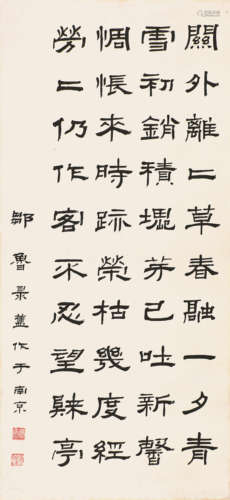 關外離〻草春融一夕青
雪初銷積芽已吐新馨
惆悵來時跡榮枯幾度經
勞〻仍作客不忍望亭
鄒魯 录舊作于南京